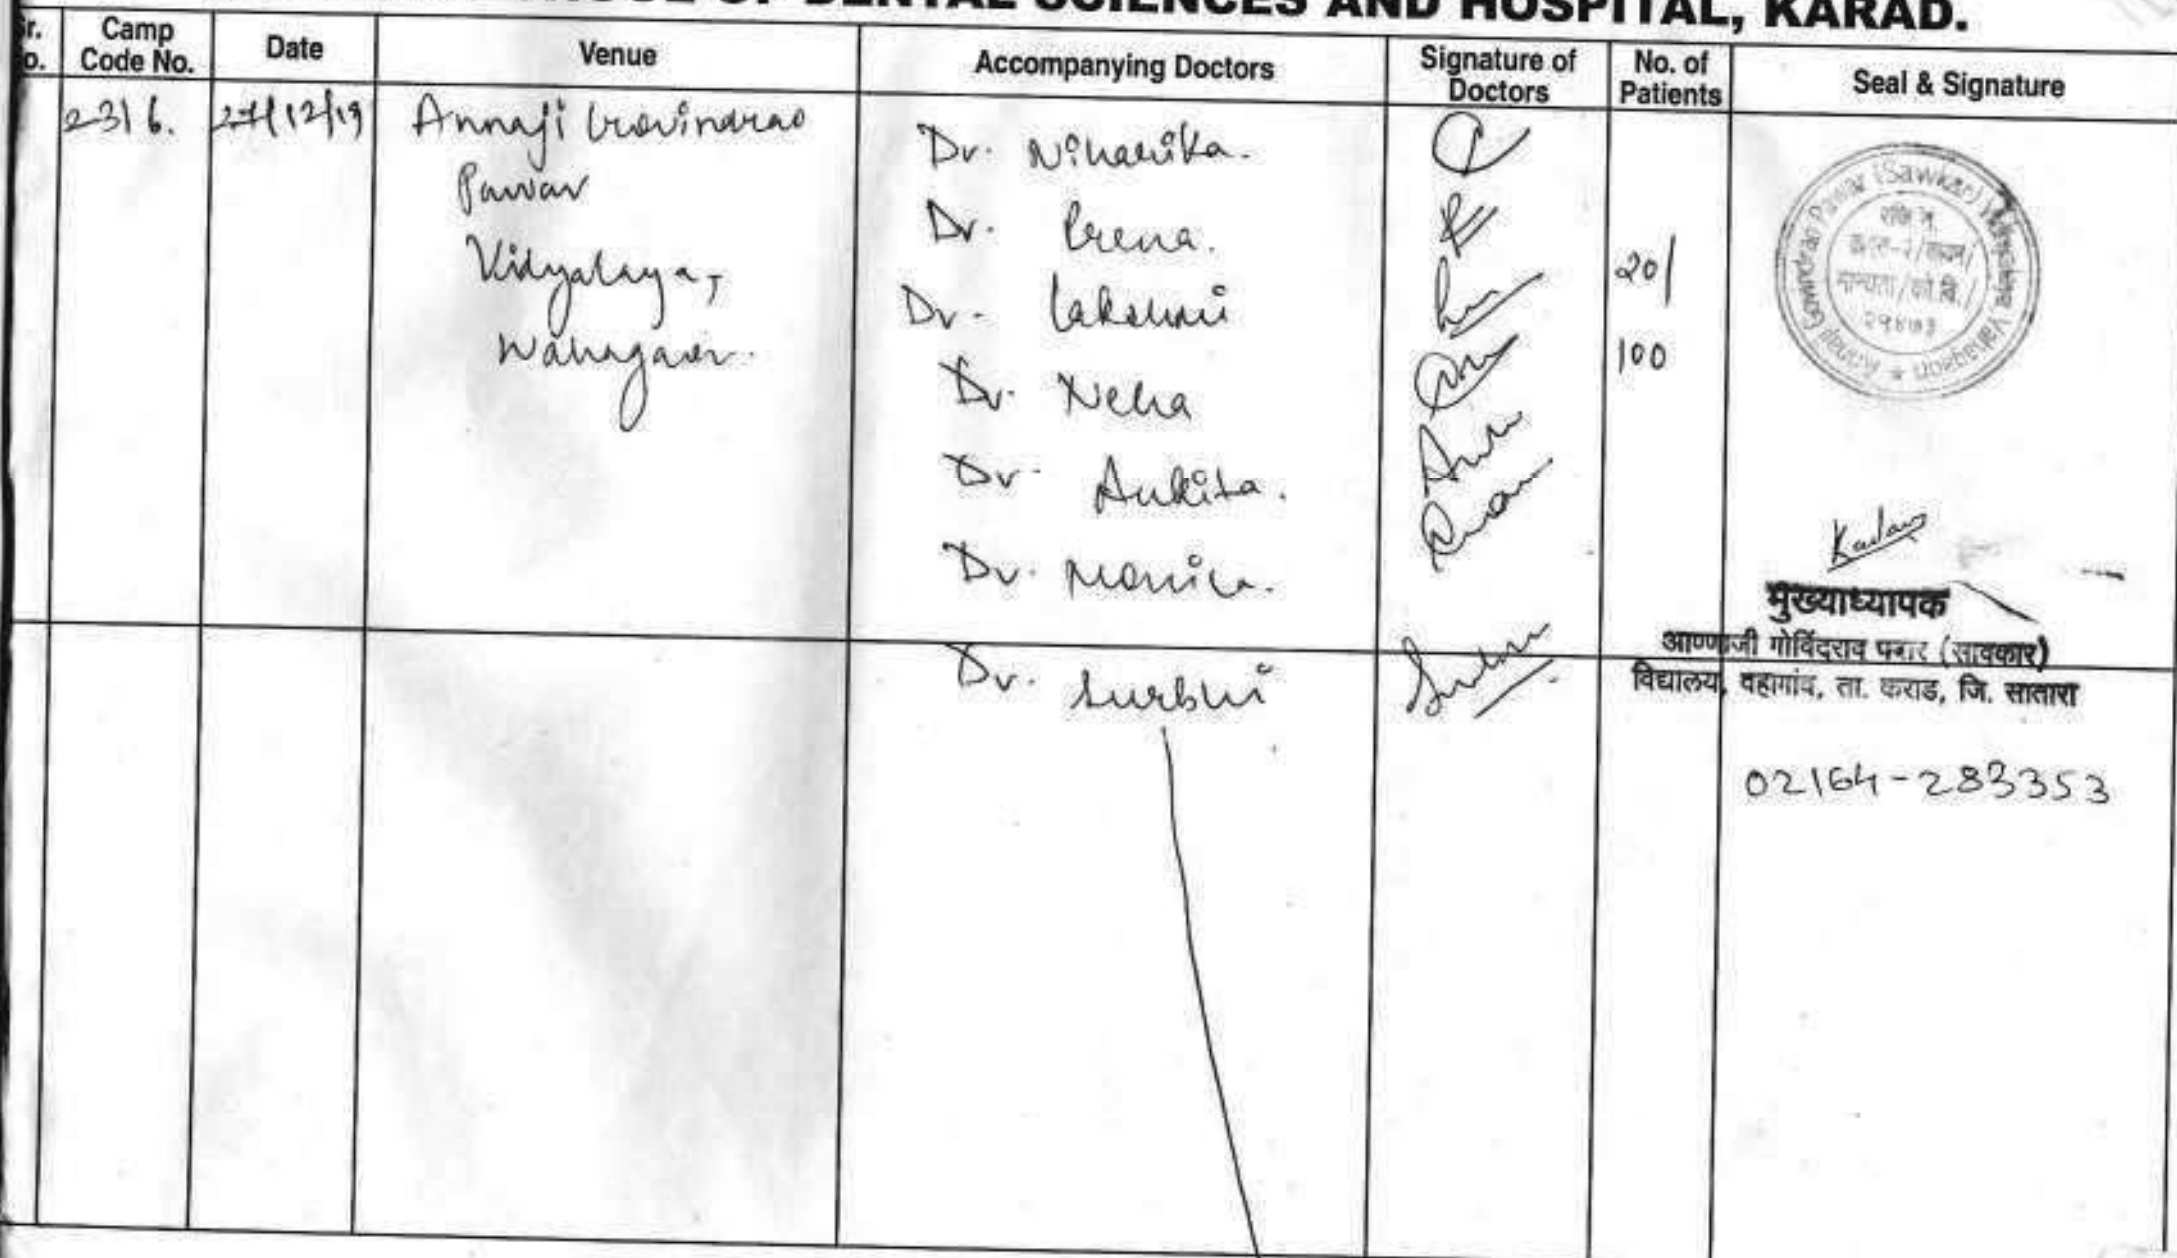 OF DENTAL SCIENCES AND HOSPITAL, KARAD.
Camp Code No. Date Venue Accompanying Doctors Signature of Doctors No. of Patients Seal & Signature
2316. 27/12/19 Annaji Govindrao
Pawar
Vidyalaya,
Wahagaon.
Dr. Niharika.
Dr. Prerna.
Dr. Lakshmi
Dr. Neha
Dr. Ankita.
Dr. Monica.
Dr. Surbhi
20/
100
Annaji Govindrao Pawar (Sawkar) Vidyalaya Vahagaon
मान्यता
Kadam
मुख्याध्यापक
आण्णाजी गोविंदराव पवार (सावकार)
विद्यालय, वहागांव, ता. कराड, जि. सातारा
02164-283353